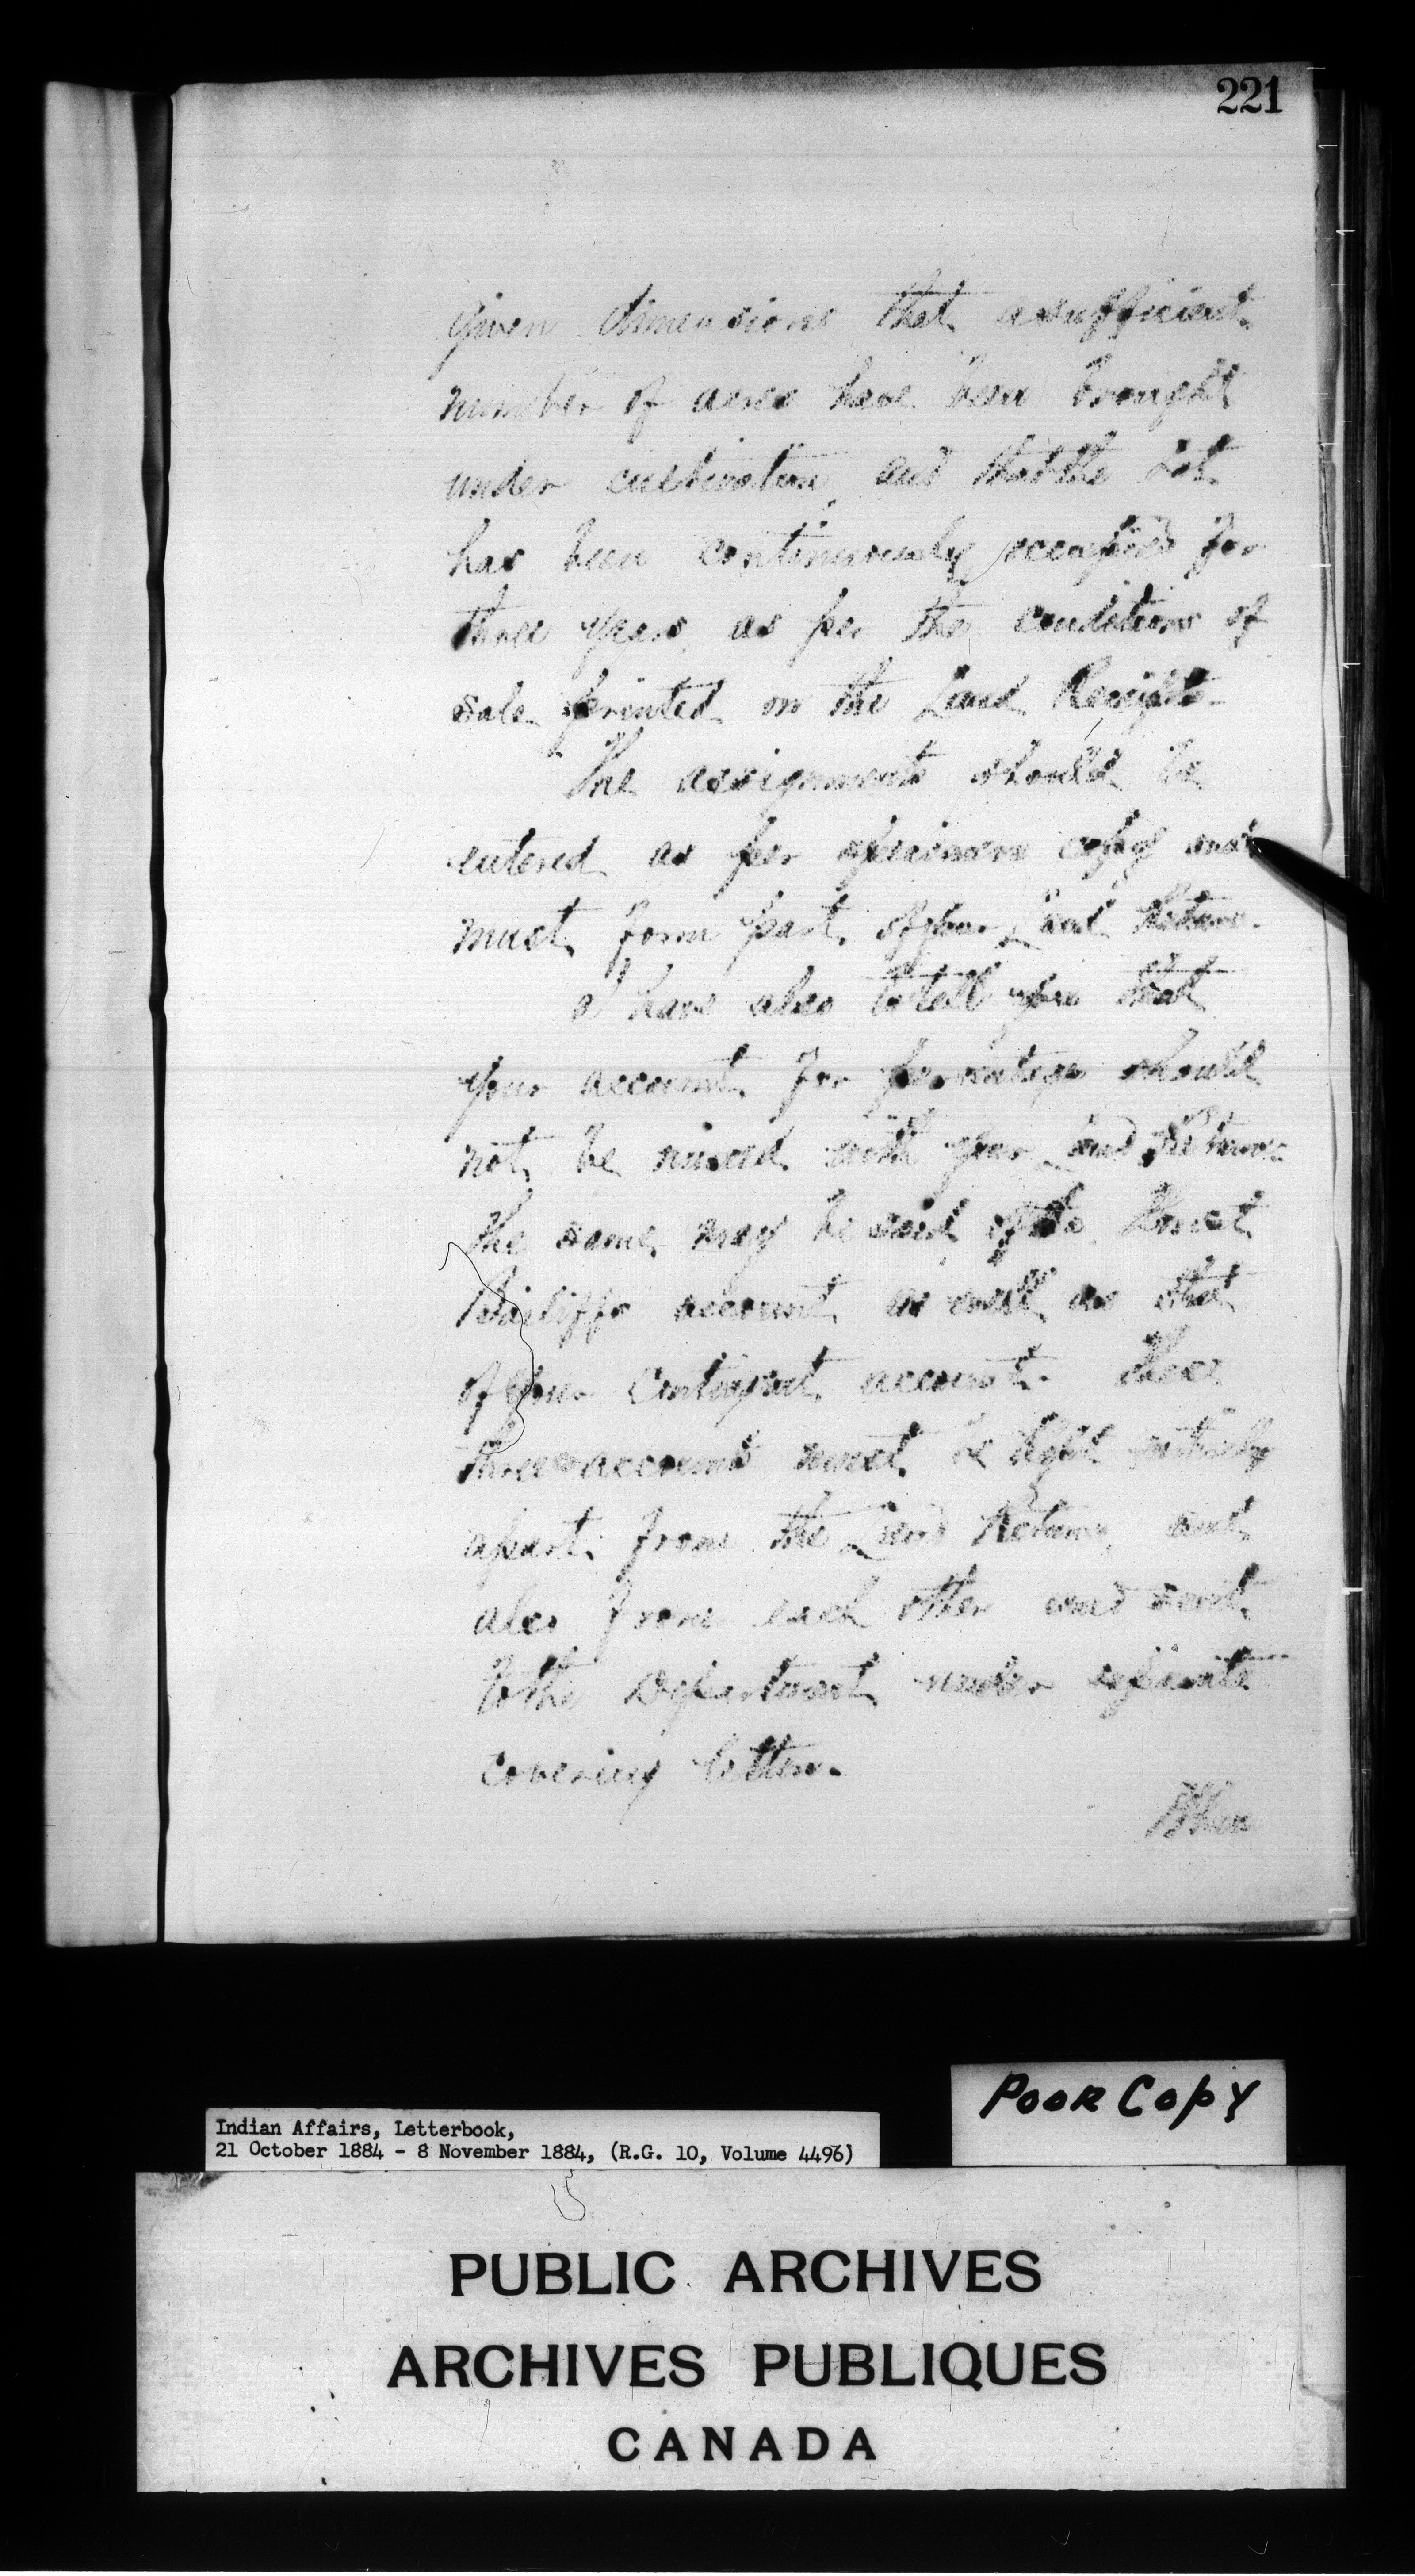 221
given dimensions that a sufficient
number of acres have been brought
under cultivation, and that the Lot
has been continuously occupied for
three years, as per the conditions of
sale printed on the Land Receipts.
The assignments should be
entered as per specimen copy and
must form part of your Land Returns.
I have also to tell you that
your account for percentage should
not be mixed with your Land Returns.
the same may be said of the Forest
Bailiffs account as well as that
of your contingent account. These
three accounts must be kept entirely
apart from the Land Returns, and
also from each other and sent
to the Department under separate
covering letters.
When
Poor Copy
Indian Affairs, Letterbook,
21 October 1884 - 8 November 1884, (R.G. 10, Volume 4496)
PUBLIC ARCHIVES
ARCHIVES PUBLIQUES
CANADA